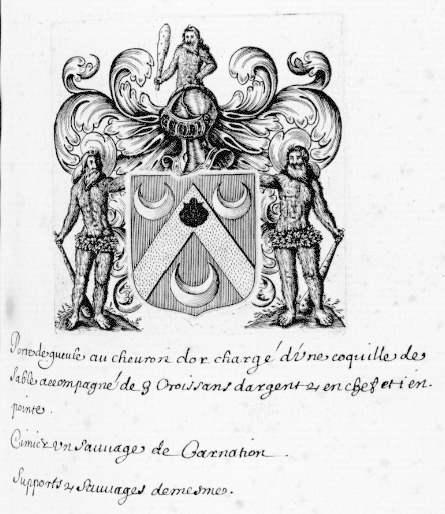 Porte de gueuse au cheuron dor chargé d'vne coquille de
sable accompagné de 3 Croissans dargent 2 en chef et i en
pointe.
Cimier vn sauuage de Carnation.
Supports 2 sauuages demesme.